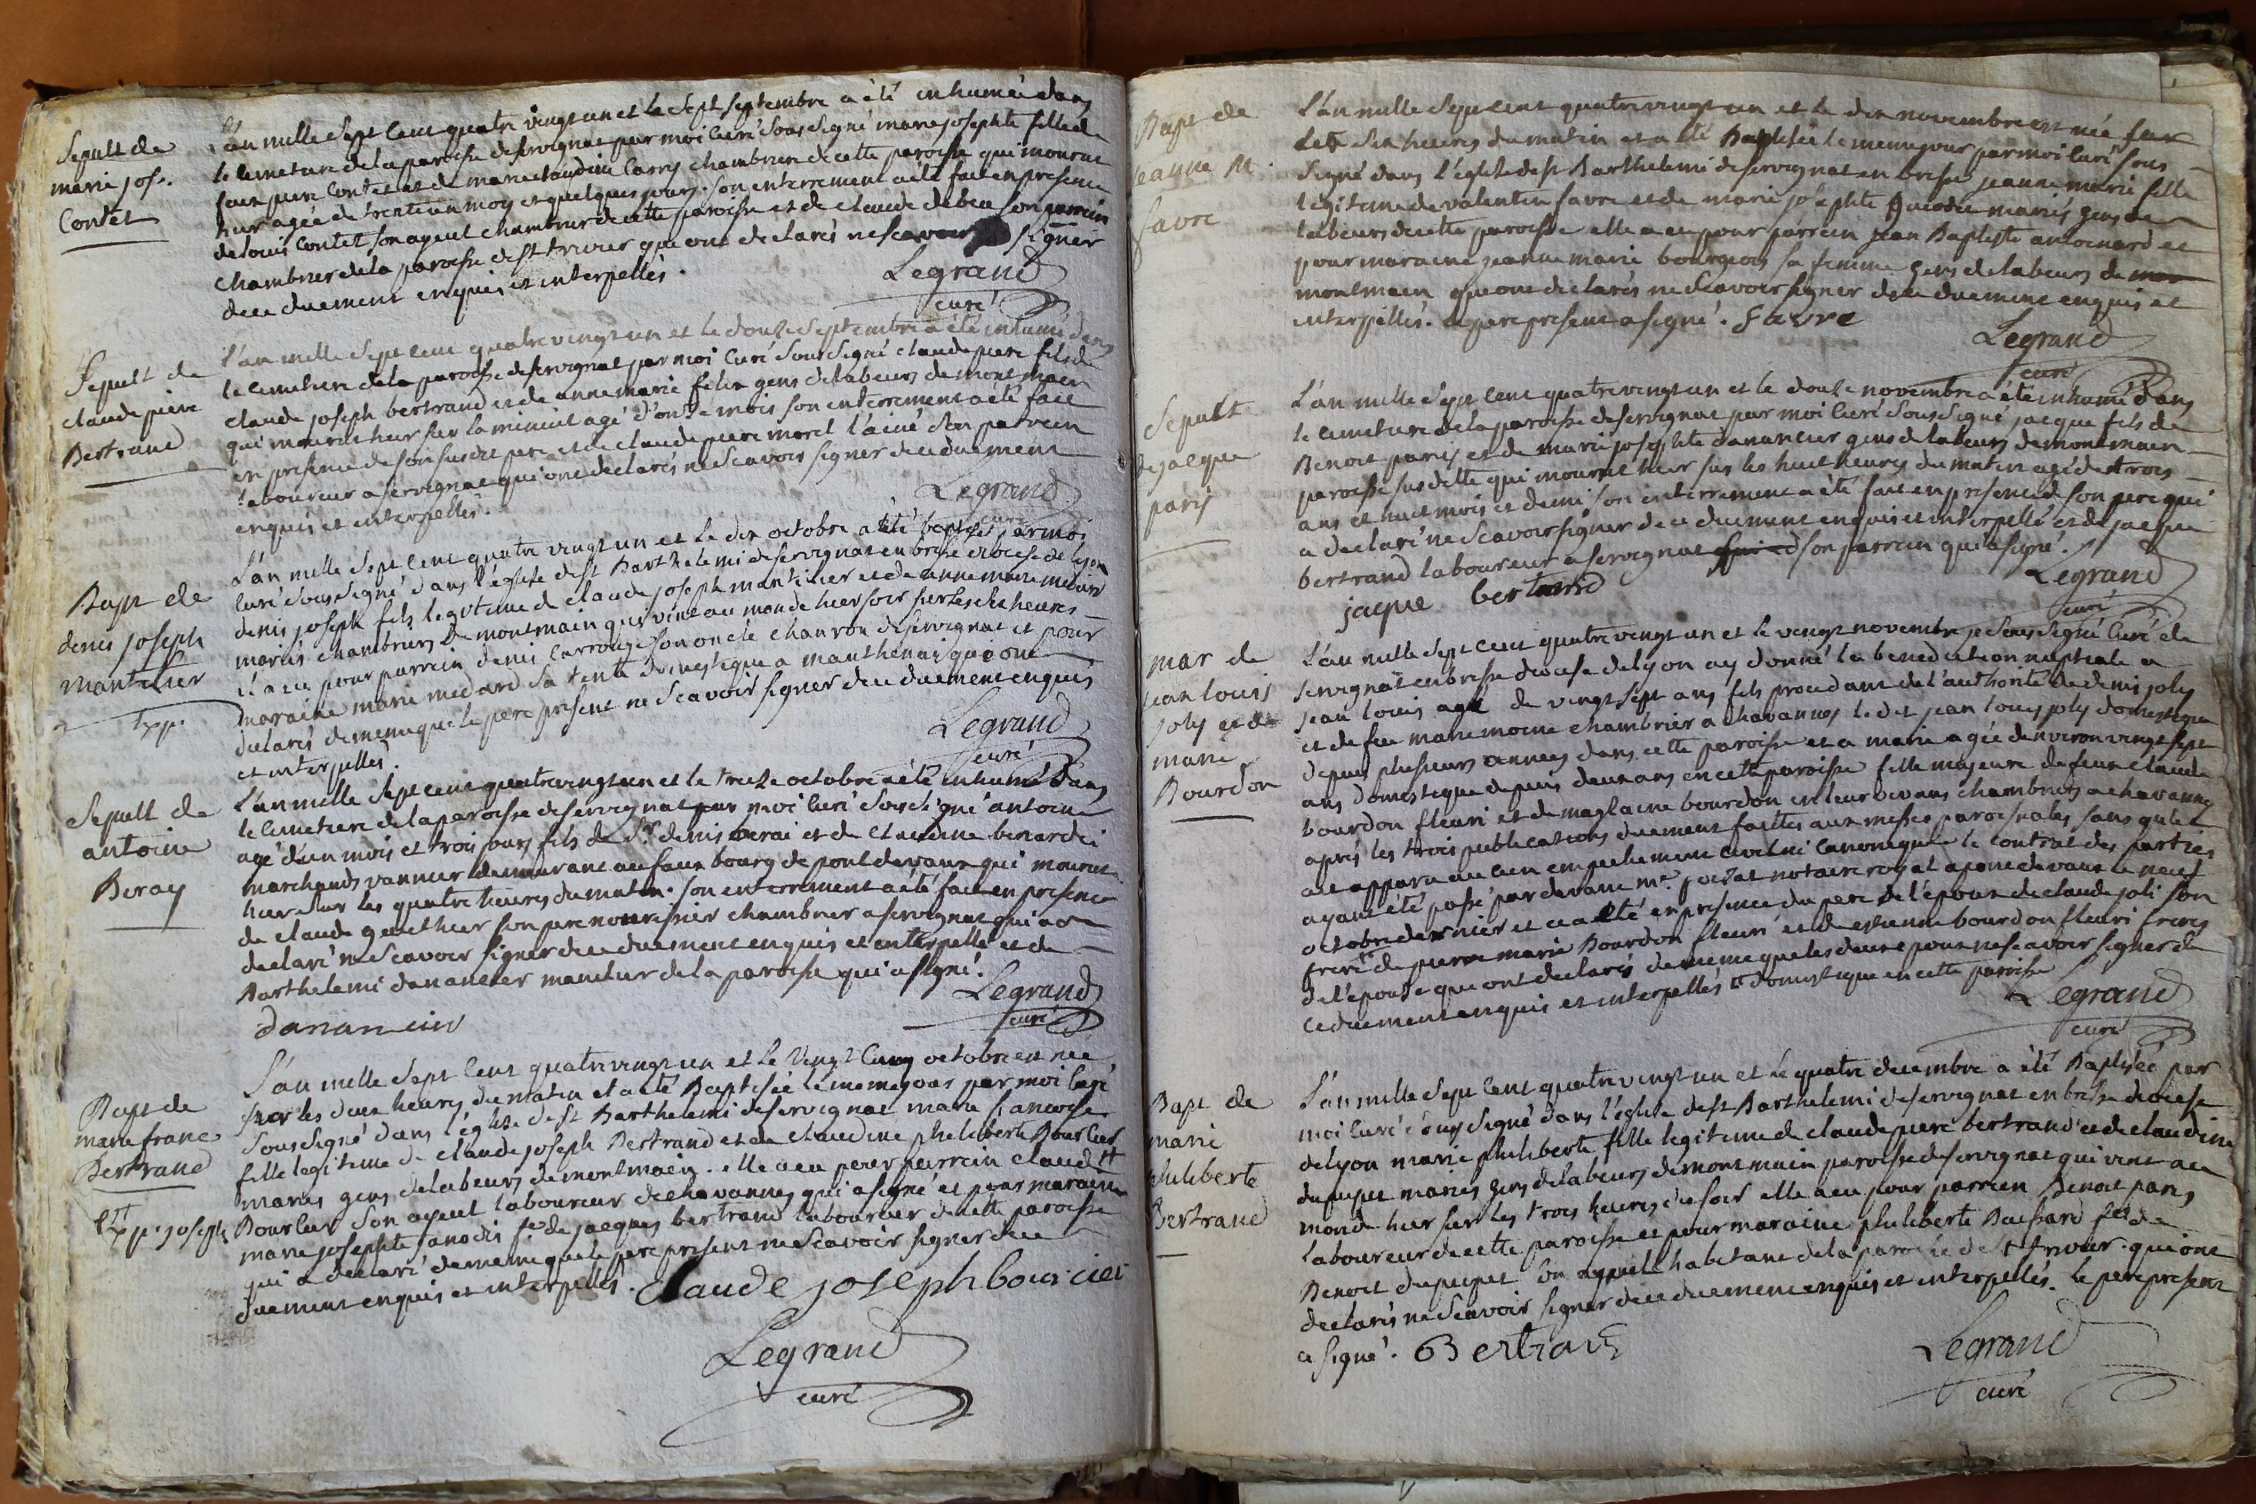 Sepult de
marie jos.
Contet
L'an mille sept cent quatre vingt un et le sept septembre a été inhumée dans
le cimetiere de la paroisse de servignat par moi curé soussigné marie josephte fille de
feu pierre Contet et de marie claudine Carry chambriers de cette paroisse qui mourut
hier agée de trente un mois et quelques jours. son enterrement a été fait en presence
de louis Contet son ayeul chambrier de cette paroisse et de claude debeu son parrein
chambrier de la paroisse de st trivier qui ont declarés ne scavoir signer
de ce duement enquis et interpellés.
Legrand
curé
Sepult de
claude pierre
Bertrand
L'an mille sept cent quatre vingt un et le douze septembre a été inhumé dans
le cimetiere de la paroisse de servignat par moi curé soussigné claude pierre fils de
claude joseph bertrand et de anne marie gens de labeurs de montmain
qui mourut hier sur la minuit agé d'onze mois son enterrement a été fait
en presence de son susdit pere et de claude pierre morel l'ainé son parrein
laboureur a servignat qui ont declarés ne scavoir signer de ce duement
enquis et interpellés.
Legrand
curé
Bapt de
denis joseph
mantelier
exp.
L'an mille sept cent quatre vingt un et le dix octobre a été baptisé par moi
curé soussigné dans l'église de st Barthelemi de servignat en bresse diocese de lyon
denis joseph fils legitime de claude joseph mantelier et de anne marie medard
mariés chambriers de montmain qui vint au monde hier soir sur les dix heures
il a eu pour parrein denis Carrouge son oncle charron de servignat et pour
maraine marie medard sa tente domestique a manthenai qui ont
declarés de meme que le pere present ne scavoir signer de ce duement enquis
et interpellés.
Legrand
curé
Sepult de
antoine
Beray
L'an mille sept cent quatre vingt un et le treize octobre a été inhumé dans
le cimetiere de la paroisse de servignat par moi curé soussigné antoine
agé d'un mois et trois jours fils de Sr. denis berai et de claudine benardet
marchands vannier demeurant au faux bourg de pont de vaux qui mourut
hier sur les quatre heures du matin. son enterrement a été fait en presence
de claude gauthier son pere nourissier chambrier a servignat qui a
declaré ne scavoir signer de ce duement enquis et interpellé et de
Barthelemi dananchier manelier de la paroisse qui a signé.
Legrand
curé
Bapt de
marie franc
Bertrand
exp. joseph
L'an mille sept cent quatre vingt un et le vingt cinq octobre est née
sur les deux heures du matin et a été Baptisée le meme jour par moi curé
soussigné dans l'église de st Barthelemi de servignat marie francoise
fille legitime de claude joseph Bertrand et de claudine philiberte Bourcier
mariés gens de labeurs de montmain. elle a eu pour parrein claude
Bourcier son ayeul laboureur de chavannes qui a signé et pour maraine
marie josephte janodis fe. de jacques bertrand laboureur de cette paroisse
qui a declaré de meme que le pere present ne scavoir signer de ce
duement enquis et interpellés. Claude joseph bourcier
Legrand
curé
Bapt de
jeanne M.
favre
L'an mille sept cent quatre vingt un et le dix novembre est née sur
les six heures du matin et a été Baptisée le meme jour par moi curé sous
signé dans l'église de st Barthelemi de servignat en bresse jeanne marie fille
legitime de valentin favre et de marie josephte mariés gens de
labeurs de cette paroisse elle a eu pour parrein jean Baptiste antoinard et
pour maraine jeanne marie bourgeois sa femme gens de labeurs de
montmain qui ont declarés ne scavoir signer de ce duement enquis et
interpellés. le pere present a signé. Favre
Legrand
curé
Sepult
de jacque
paris
L'an mille sept cent quatre vingt un et le douze novembre a été inhumé dans
le cimetiere de la paroisse de servignat par moi curé soussigné jacque fils de
Benoit paris et de marie josephte dananchier gens de labeurs de montmain
paroisse susditte qui mourut hier sur les huit heures du matin agé de trois
ans et huit mois et demi son enterrement a été fait en presence de son pere qui
a declaré ne scavoir signer de ce duement enquis et interpellé et de jacque
bertrand laboureur a servignat son parrein qui a signé.
jaque bertrand
Legrand
curé
Mar de
jean louis
joly et de
marie
Bourdon
L'an mille sept cent quatre vingt un et le vingt novembre je soussigné curé de
servignat en bresse diocese de lyon ay donné la benediction nuptiale a
jean louis agé de vingt sept ans fils procedant de l'authorité de denis joly
et de feue marie moine chambrier a chavannes le dit jean louis joly domestique
depuis plusieurs annees dans cette paroisse et a marie agée d'environ vingt sept
ans domestique depuis deux ans en cette paroisse fille majeure de feu claude
bourdon fleuri et de maglaine bourdon en leur vivans chambriers a chavannes
après les trois publications duement faittes aux messes paroissiales sans qu'il
ait apparu aucun empechement civil ni canonique le contrat des parties
ayant été passé par devant me. notaire royal a pont de vaux le neuf
octobre dernier et ce a été en presence du pere de l'epoux de claude joli son
frere de pierre marie Bourdon fleuri et de etienne bourdon fleuri freres
de l'epouse qui ont declarés de meme que les deux epoux ne scavoir signer de
ce duement enquis et interpellés domestique en cette paroisse
Legrand
curé
Bapt de
marie
philiberte
Bertrand
L'an mille sept cent quatre vingt un et le quatre decembre a été Baptisée par
moi curé soussigné dans l'église de st Barthelemi de servignat en bresse diocese
de lyon marie philiberte fille legitime de claude pierre bertrand et de claudine
dupupet mariés gens de labeurs de montmain paroisse de servignat qui vint au
monde hier sur les trois heures du soir elle a eu pour parrein Benoit paris
laboureur de cette paroisse et pour maraine philiberte Buchard fe. de
Benoit dupupet habitant de la paroisse de st trivier. qui ont
declarés ne scavoir signer de ce duement enquis et interpellés. le pere present
a signé. Bertrand
Legrand
curé